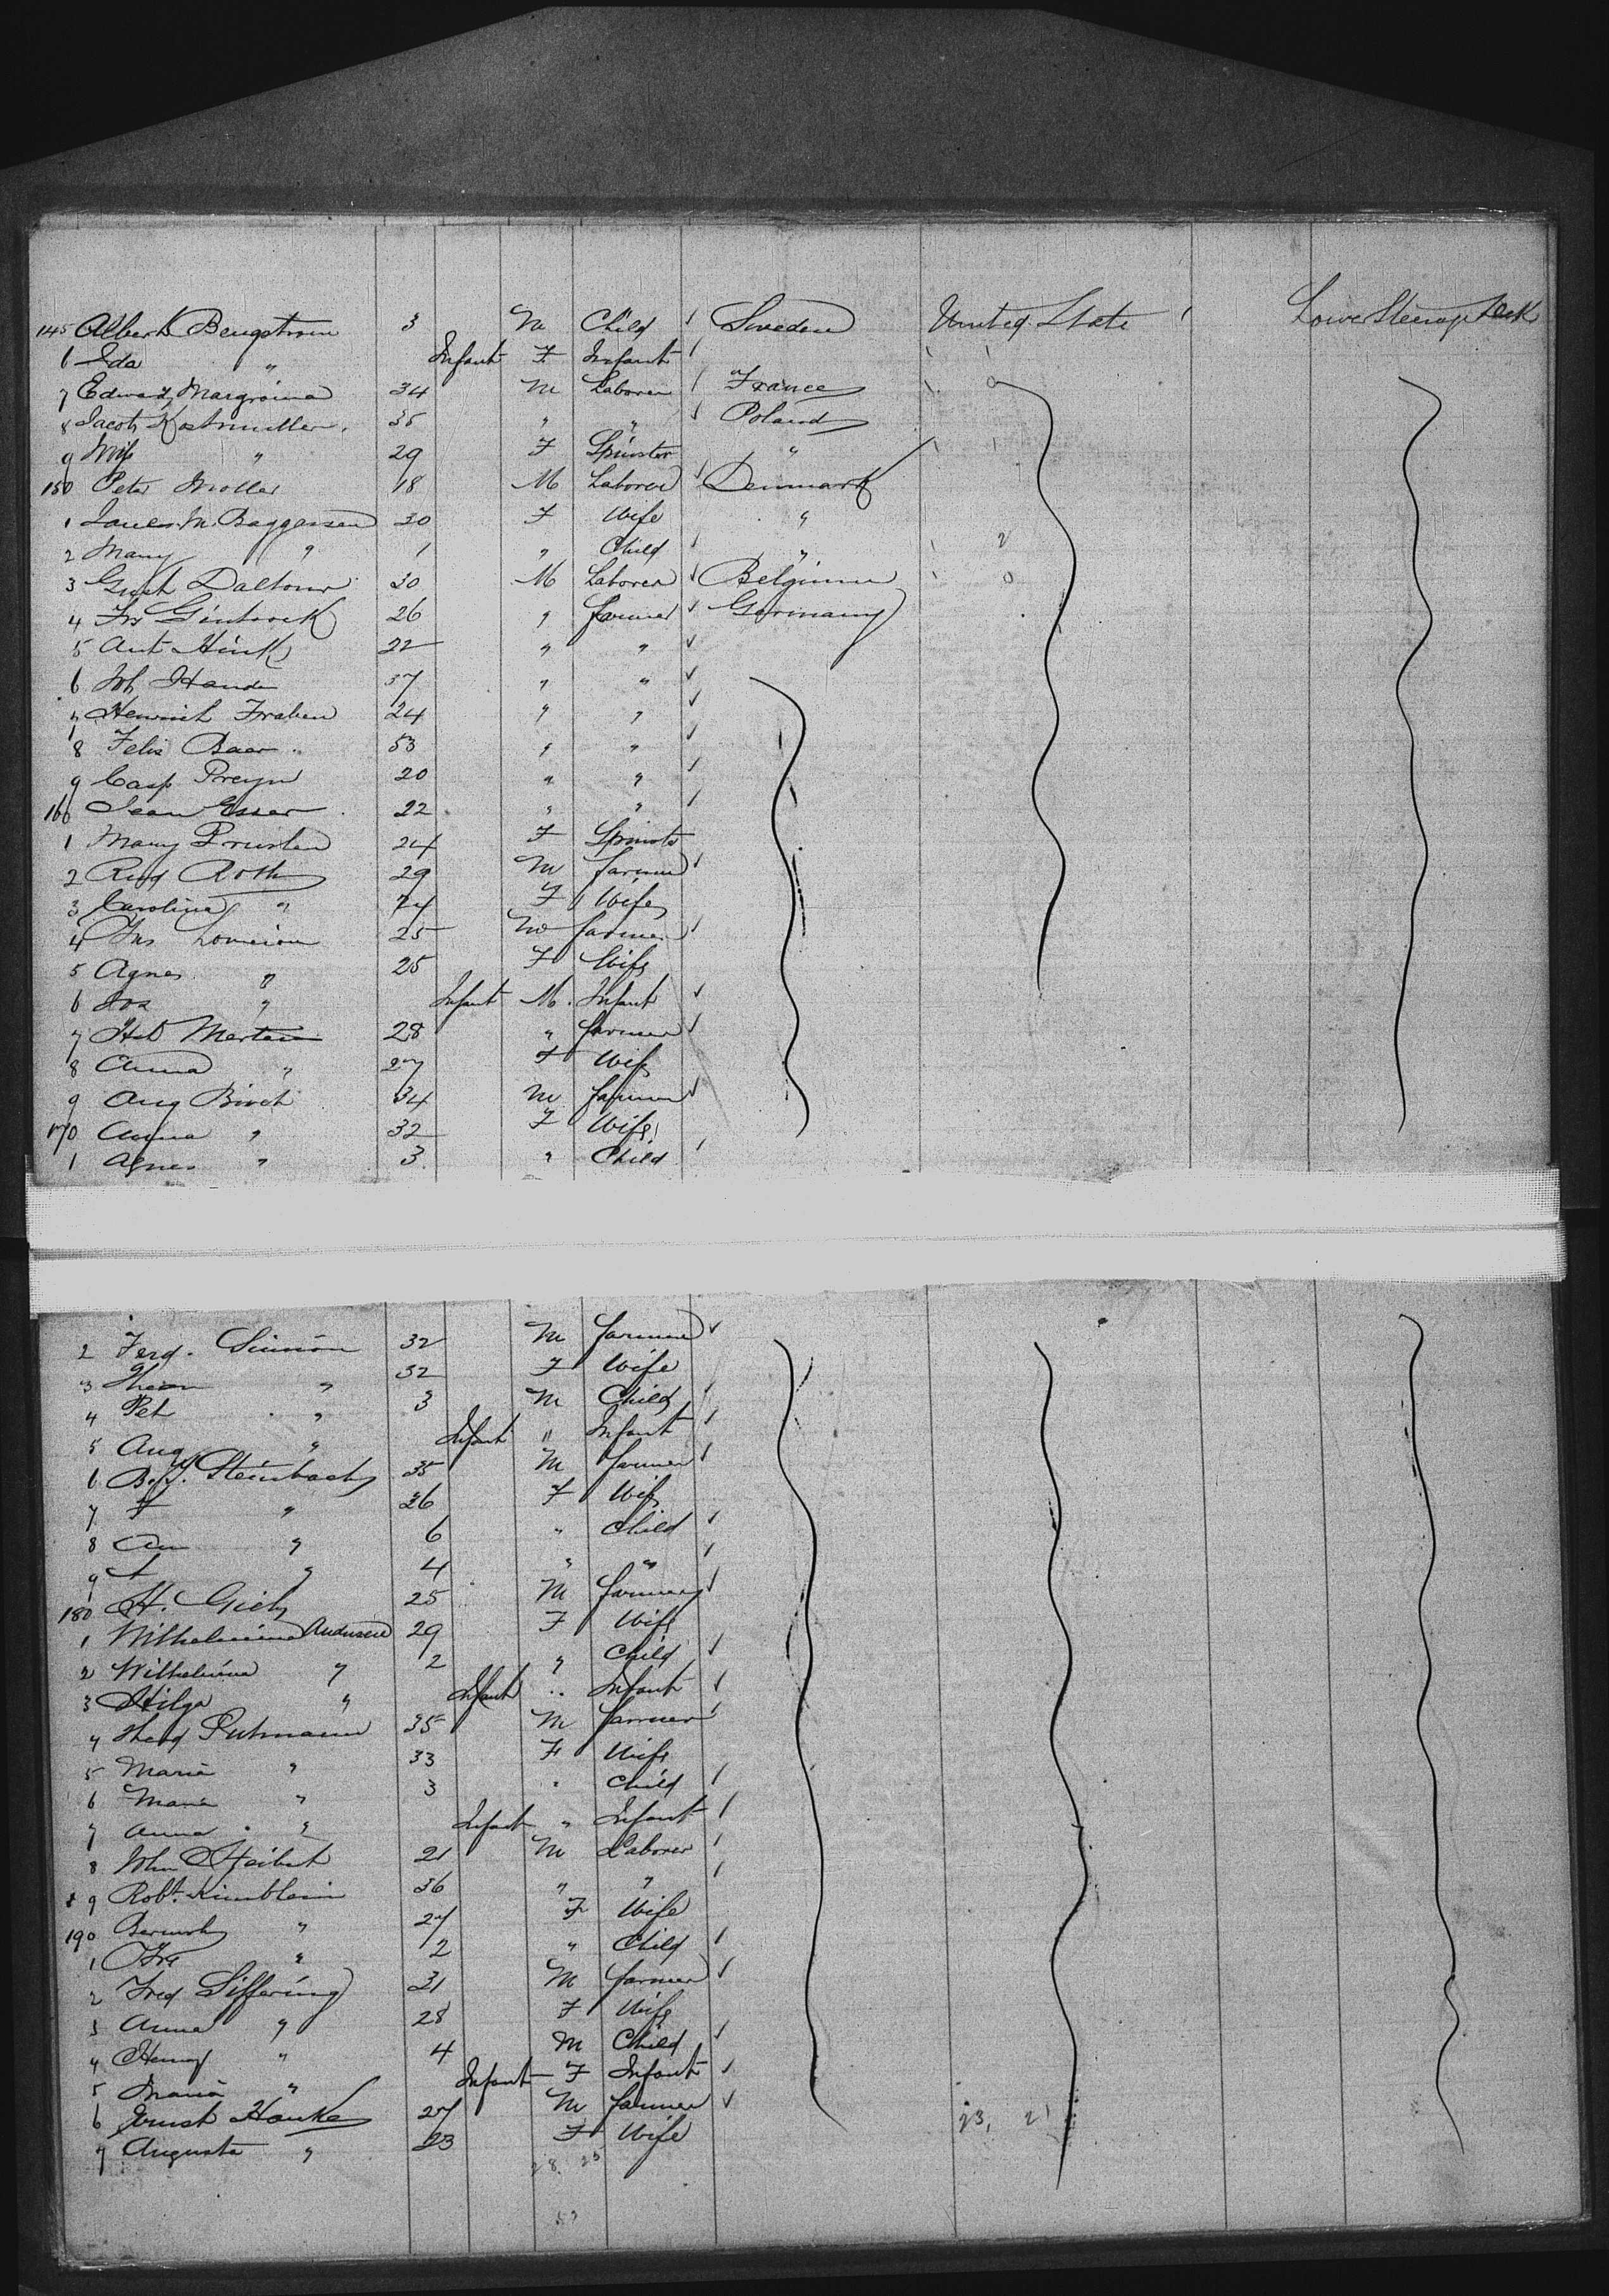 145 Albert Bengstrom 3 M Child Sweden United State Lower Steerage Deck
6 Ida " Infant F Infant
7 Edward 34 M Laborer France
8 Jacob Kostmuller 35 " " Poland
9 Wife " 29 F Spinster "
150 Peter Moller 18 M Laborer Denmark
1 M. Baggersen 30 F Wife "
2 Mary " 1 " Child "
3 Gust Daltour 30 M Laborer Belgium
4 26 " farmer Germany
5 Ant Hink 22 " "
6 Joh 37 " "
7 Heinrich Fraben 24 " "
8 Felix Baer 53 " "
9 Casp Preyn 20 " "
160 Jean Esser 22 " "
1 Mary 24 F Spinster
2 Rud Roth 29 M farmer
3 Carolina " 24 F Wife
4 25 M farmer
5 Agnes " 25 F Wife
6 Jos " Infant M Infant
7 Merten 28 " farmer
8 Anna " 27 F Wife
9 Aug Birch 34 M farmer
170 Anna " 32 F Wife
1 Agnes " 3 " Child
2 Ferd. Simon 32 M farmer
3 " 32 F Wife
4 Pet " 3 M Child
5 Aug " Infant " Infant
6 Steinbach 35 M farmer
7 F " 26 F Wife
8 An " 6 " Child
9 A " 4 " "
180 H. 25 M farmer
1 Wilhelmina Andersen 29 F Wife
2 Wilhelmina " 2 " Child
3 Hilga " Infant " Infant
4 Putmann 35 M farmer
5 Maria " 33 F Wife
6 Maria " 3 " Child
7 Anna " Infant " Infant
8 John 21 M Laborer
9 Robt. 36 " "
190 " 27 F Wife
1 " 2 " Child
2 Fred Siffering 31 M farmer
3 Anna " 28 F Wife
4 Henry " 4 M Child
5 Maria " Infant F Infant
6 Ernst Hanke 27 M farmer
7 Augusta " 23 F Wife
23, 21
28 25
53